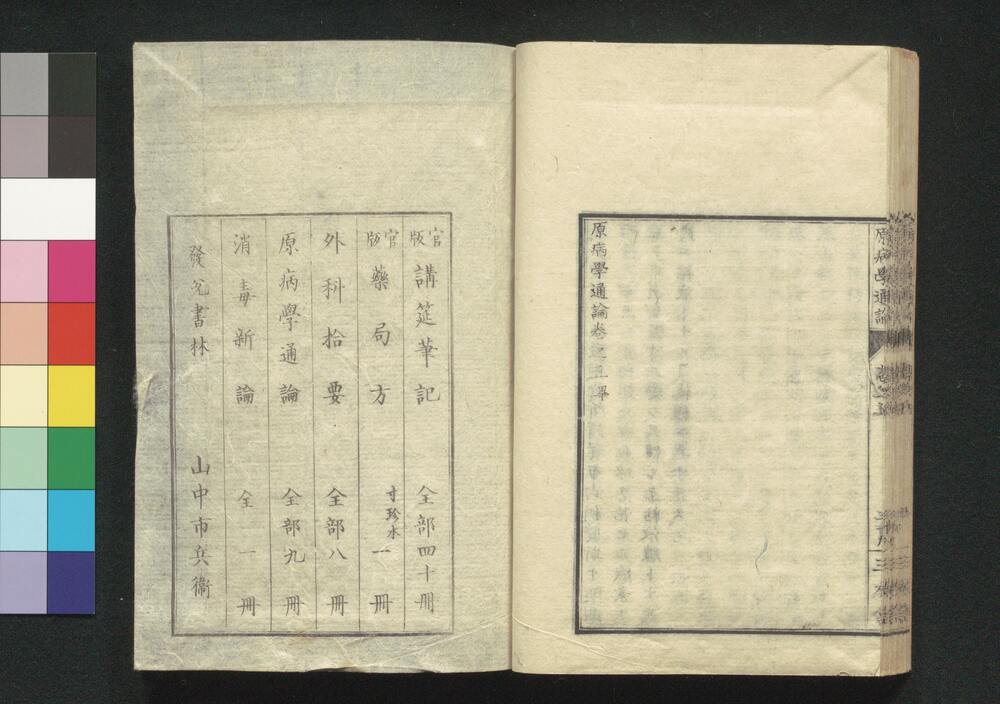 原病學通論
原病學通論卷之五畢
官版 講筵筆記 全部四十冊
官版 藥局方 寸珍本 一冊
外科拾要 全部八冊
原病學通論 全部九冊
消毒新論 全一冊
發兌書林 山中市兵衞